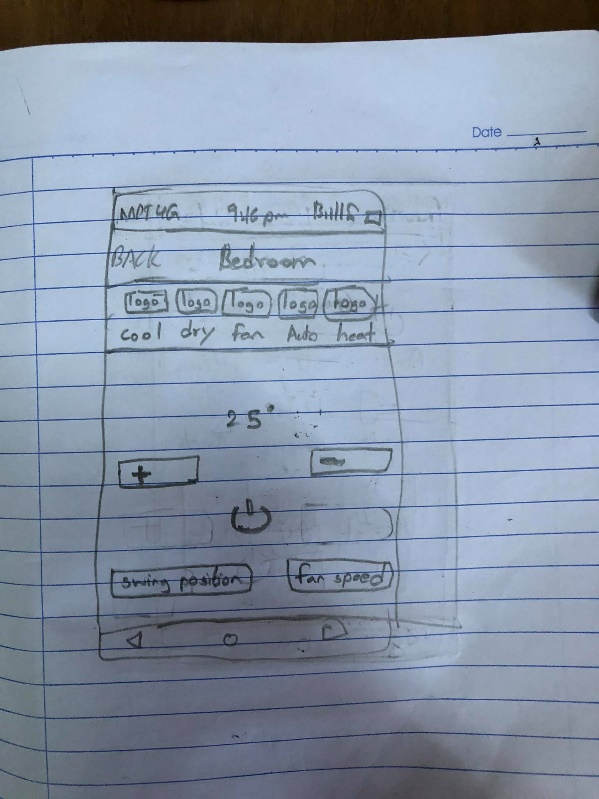 Date
MPT 4G 9:46 pm
BACK Bedroom
logo logo logo logo logo
cool dry fan Auto heat
25°
+ -
swing position fan speed